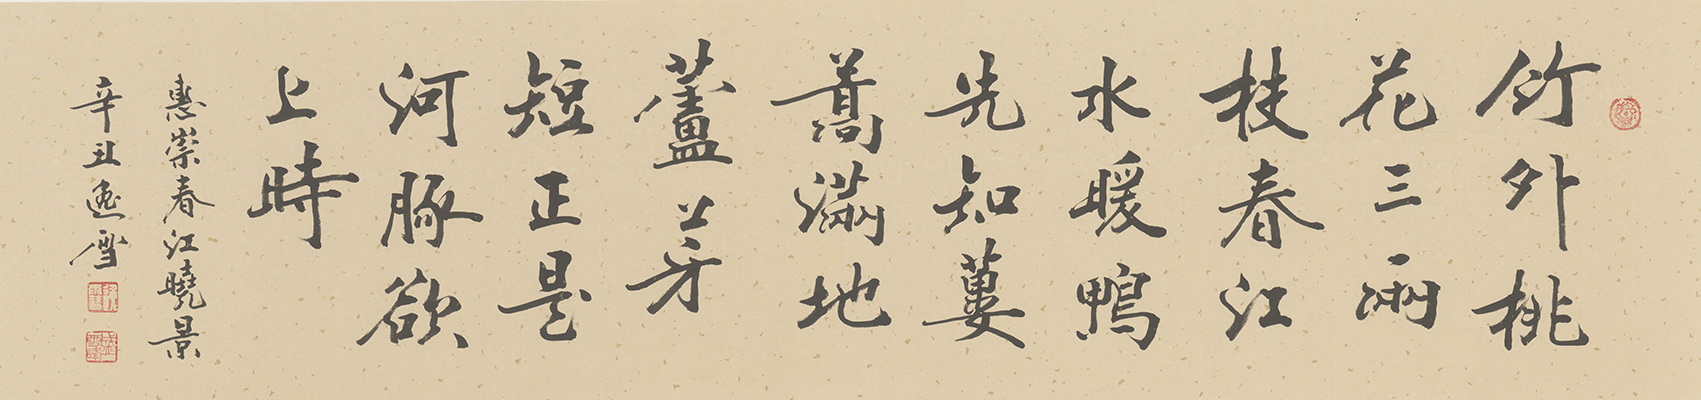 竹外桃
花三兩
枝春江
水暖鴨
先知蔞
蒿滿地
蘆芽
短正是
河豚欲
上時
惠崇春江曉景
辛丑逸雪